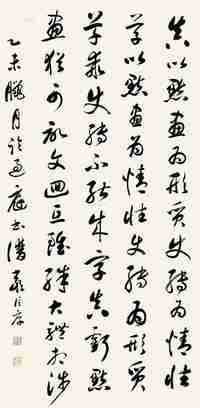 真以點畫為形質使轉為情性
草以點畫為情性使轉為形質
草乖使轉不能成字真虧點
畫猶可記文迴互雖殊大體相涉
乙未臘月過庭書譜